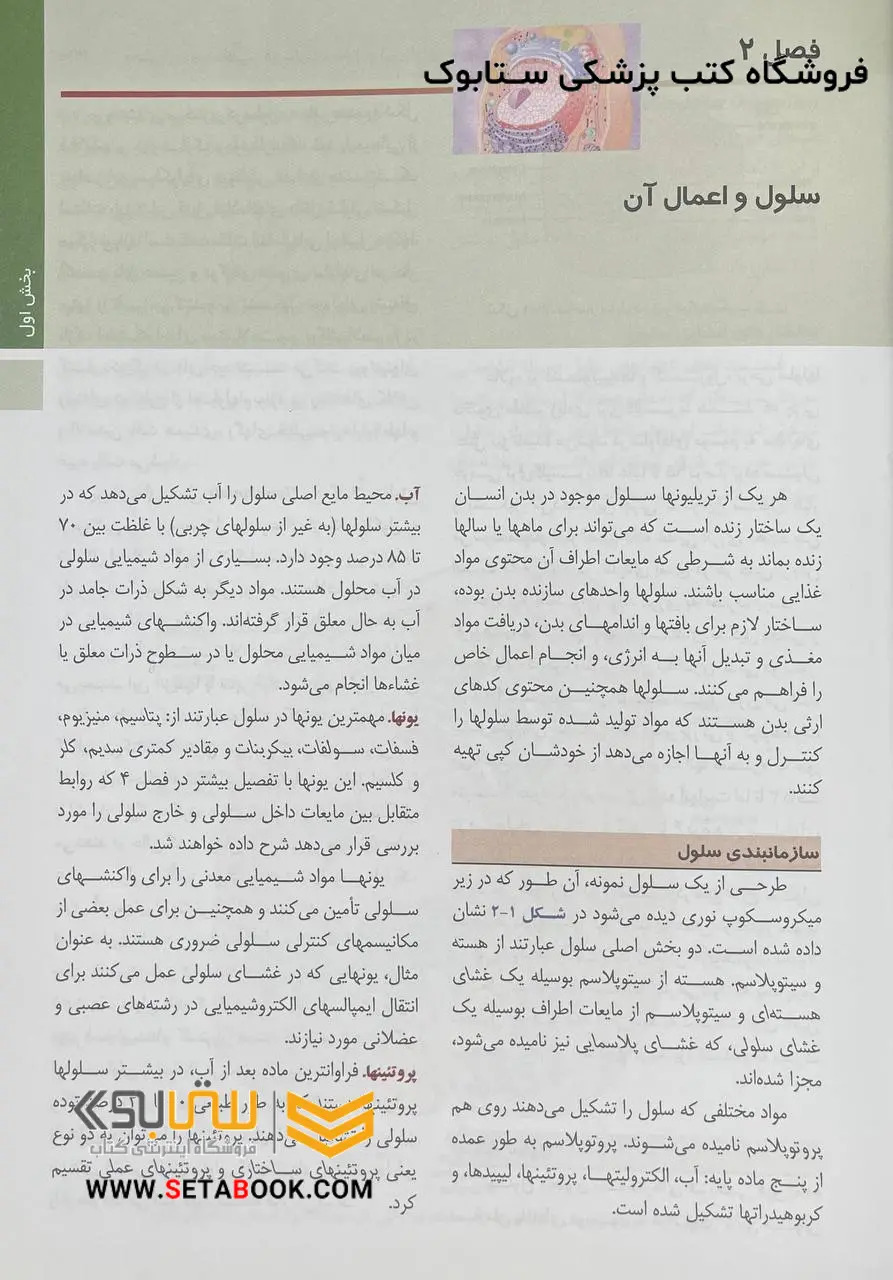 فصل ۲
فروشگاه کتب پزشکی ستابوک
سلول و اعمال آن
بخش اول
هر یک از تریلیونها سلول موجود در بدن انسان
یک ساختار زنده است که می‌تواند برای ماهها یا سالها
زنده بماند به شرطی که مایعات اطراف آن محتوی مواد
غذایی مناسب باشند. سلولها واحدهای سازنده بدن بوده،
ساختار لازم برای بافتها و اندامهای بدن، دریافت مواد
مغذی و تبدیل آنها به انرژی، و انجام اعمال خاص
را فراهم می‌کنند. سلولها همچنین محتوی کدهای
ارثی بدن هستند که مواد تولید شده توسط سلولها را
کنترل و به آنها اجازه می‌دهد از خودشان کپی تهیه
کنند.
سازمانبندی سلول
طرحی از یک سلول نمونه، آن طور که در زیر
میکروسکوپ نوری دیده می‌شود در شکل ۱-۲ نشان
داده شده است. دو بخش اصلی سلول عبارتند از هسته
و سیتوپلاسم. هسته از سیتوپلاسم بوسیله یک غشای
هسته‌ای و سیتوپلاسم از مایعات اطراف بوسیله یک
غشای سلولی، که غشای پلاسمایی نیز نامیده می‌شود،
مجزا شده‌اند.
مواد مختلفی که سلول را تشکیل می‌دهند روی هم
پروتوپلاسم نامیده می‌شوند. پروتوپلاسم به طور عمده
از پنج ماده پایه: آب، الکترولیتها، پروتئینها، لیپیدها، و
کربوهیدراتها تشکیل شده است.
آب. محیط مایع اصلی سلول را آب تشکیل می‌دهد که در
بیشتر سلولها (به غیر از سلولهای چربی) با غلظت بین ۷۰
تا ۸۵ درصد وجود دارد. بسیاری از مواد شیمیایی سلولی
در آب محلول هستند. مواد دیگر به شکل ذرات جامد در
آب به حال معلق قرار گرفته‌اند. واکنشهای شیمیایی در
میان مواد شیمیایی محلول یا در سطوح ذرات معلق یا
غشاءها انجام می‌شود.
یونها. مهمترین یونها در سلول عبارتند از: پتاسیم، منیزیوم،
فسفات، سولفات، بیکربنات و مقادیر کمتری سدیم، کلر
و کلسیم. این یونها با تفصیل بیشتر در فصل ۴ که روابط
متقابل بین مایعات داخل سلولی و خارج سلولی را مورد
بررسی قرار می‌دهد شرح داده خواهند شد.
یونها مواد شیمیایی معدنی را برای واکنشهای
سلولی تأمین می‌کنند و همچنین برای عمل بعضی از
مکانیسمهای کنترلی سلولی ضروری هستند. به عنوان
مثال، یونهایی که در غشای سلولی عمل می‌کنند برای
انتقال ایمپالسهای الکتروشیمیایی در رشته‌های عصبی و
عضلانی مورد نیازند.
پروتئینها. فراوانترین ماده بعد از آب، در بیشتر سلولها
پروتئینها به طور درصد توده
سلولی را دهند. پروتئینها را می‌توان به دو نوع
یعنی پروتئینهای ساختاری و پروتئینهای عملی تقسیم
کرد.
ستابوک
فروشگاه اینترنتی کتاب
WWW.SETABOOK.COM